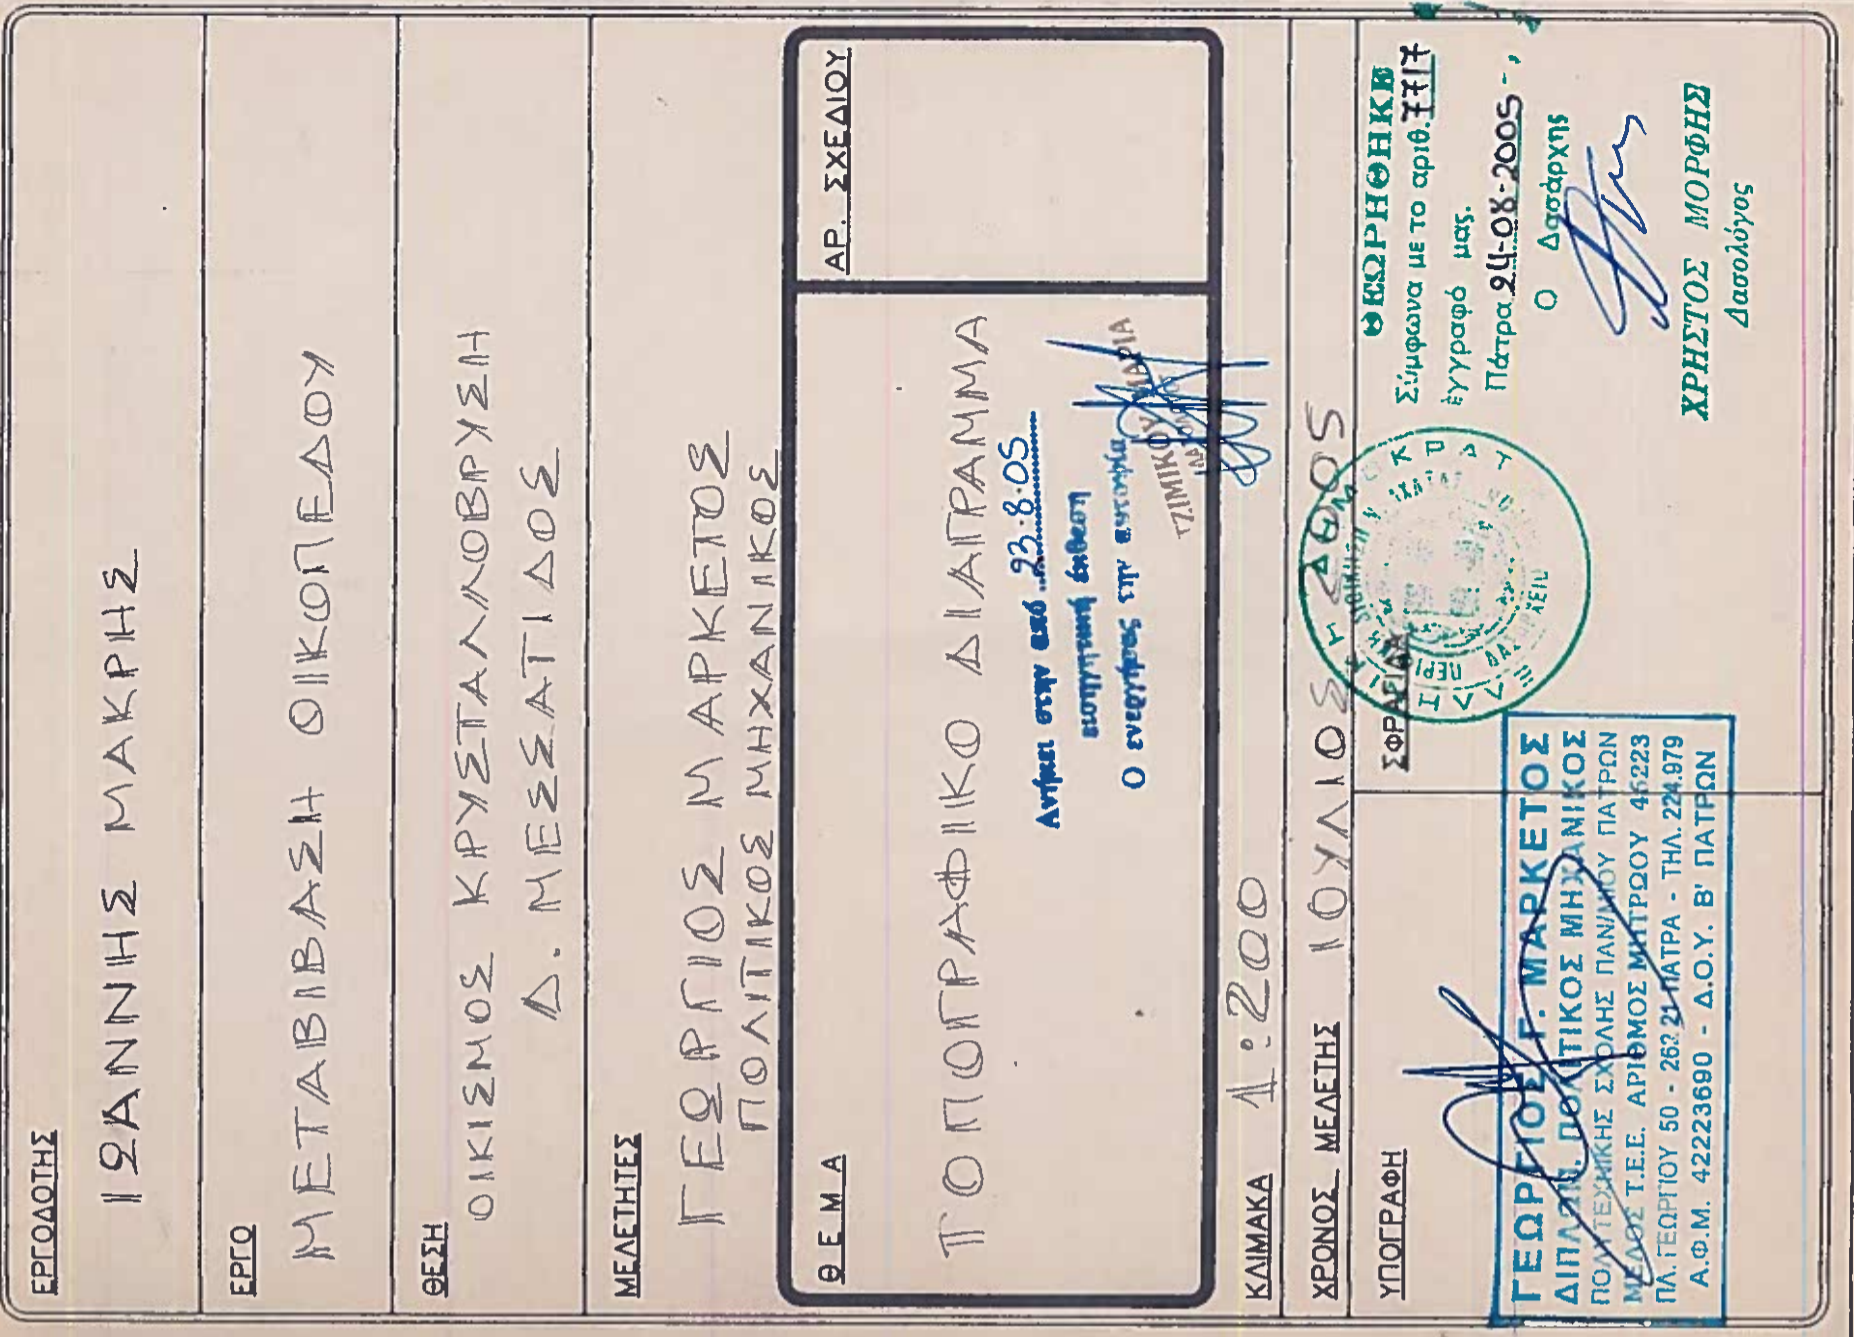 ΕΡΓΟΔΟΤΗΣ
ΙΩΑΝΝΗΣ ΜΑΚΡΗΣ
ΕΡΓΟ
ΜΕΤΑΒΙΒΑΣΗ ΟΙΚΟΠΕΔΟΥ
ΘΕΣΗ
ΟΙΚΙΣΜΟΣ ΚΡΥΣΤΑΛΛΟΒΡΥΣΗ
Δ. ΜΕΣΣΑΤΙΔΟΣ
ΜΕΛΕΤΗΤΕΣ
ΓΕΩΡΓΙΟΣ ΜΑΡΚΕΤΟΣ
ΠΟΛΙΤΙΚΟΣ ΜΗΧΑΝΙΚΟΣ
ΘΕΜΑ
ΑΡ. ΣΧΕΔΙΟΥ
ΤΟΠΟΓΡΑΦΙΚΟ ΔΙΑΓΡΑΜΜΑ
Ανήκει στην από 23-8-05
εισηγητική έκθεση
Ο ενεργήσας την αυτοψία
ΤΖΙΜΙΚΟΥ ΜΑΡΙΑ
ΚΛΙΜΑΚΑ 1:200
ΧΡΟΝΟΣ ΜΕΛΕΤΗΣ ΙΟΥΛΙΟΣ 2005
ΥΠΟΓΡΑΦΗ
ΓΕΩΡΓΙΟΣ Γ. ΜΑΡΚΕΤΟΣ
ΔΙΠΛΩΜ. ΠΟΛΙΤΙΚΟΣ ΜΗΧΑΝΙΚΟΣ
ΠΟΛΥΤΕΧΝΙΚΗΣ ΣΧΟΛΗΣ ΠΑΝ/ΜΙΟΥ ΠΑΤΡΩΝ
ΜΕΛΟΣ Τ.Ε.Ε. ΑΡΙΘΜΟΣ ΜΗΤΡΩΟΥ 45223
ΠΛ. ΓΕΩΡΓΙΟΥ 50 - 262 21 ΠΑΤΡΑ - ΤΗΛ. 224.979
Α.Φ.Μ. 42223690 - Δ.Ο.Υ. Β' ΠΑΤΡΩΝ
ΣΦΡΑΓΙΔΑ
ΕΛΛΗΝΙΚΗ ΔΗΜΟΚΡΑΤΙΑ
ΘΕΩΡΗΘΗΚΕ
Σύμφωνα με το αριθ. 7717
έγγραφό μας.
Πάτρα 24-08-2005
Ο Δασάρχης
ΧΡΗΣΤΟΣ ΜΟΡΦΗΣ
Δασολόγος